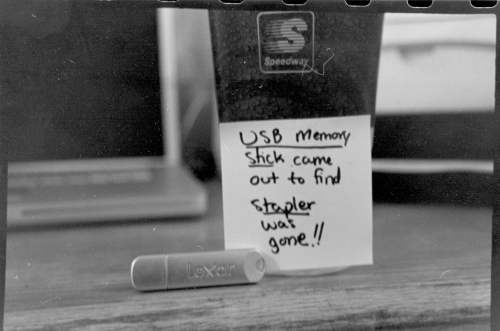 Speedway
USB Memory
stick came
out to find
stapler
was
gone!!
Lexar